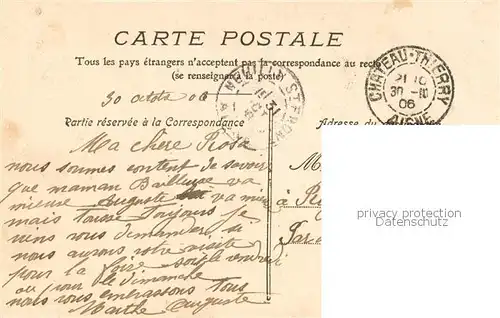 CARTE POSTALE
Tous les pays étrangers n'acceptent pas la correspondance au recto
(se renseigner à la poste)
NEUILLY ST FRONT
CHATEAU-THIERRY
30
06
AISNE
30 octob 06
Partie réservée à la Correspondance
Adresse du
Ma chere Rosa
nous sommes content de savoir
que maman va
mieuse Auguste va mieu
mais tousse toujours je
viens vous demander si
nous aurons votre visite
pour la foire soit le vendredi
ou pour le dimanche
nous vous embrassons tous
Marthe Auguste
M
à
Par
privacy protection
Datenschutz